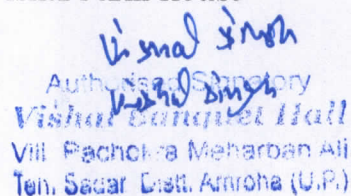 Vishal Singh
Authorised Signatory
Vishal Singh
Vishal Banquet Hall
Vill. Pachokra Meharban Ali
Teh. Sadar Distt. Amroha (U.P.)